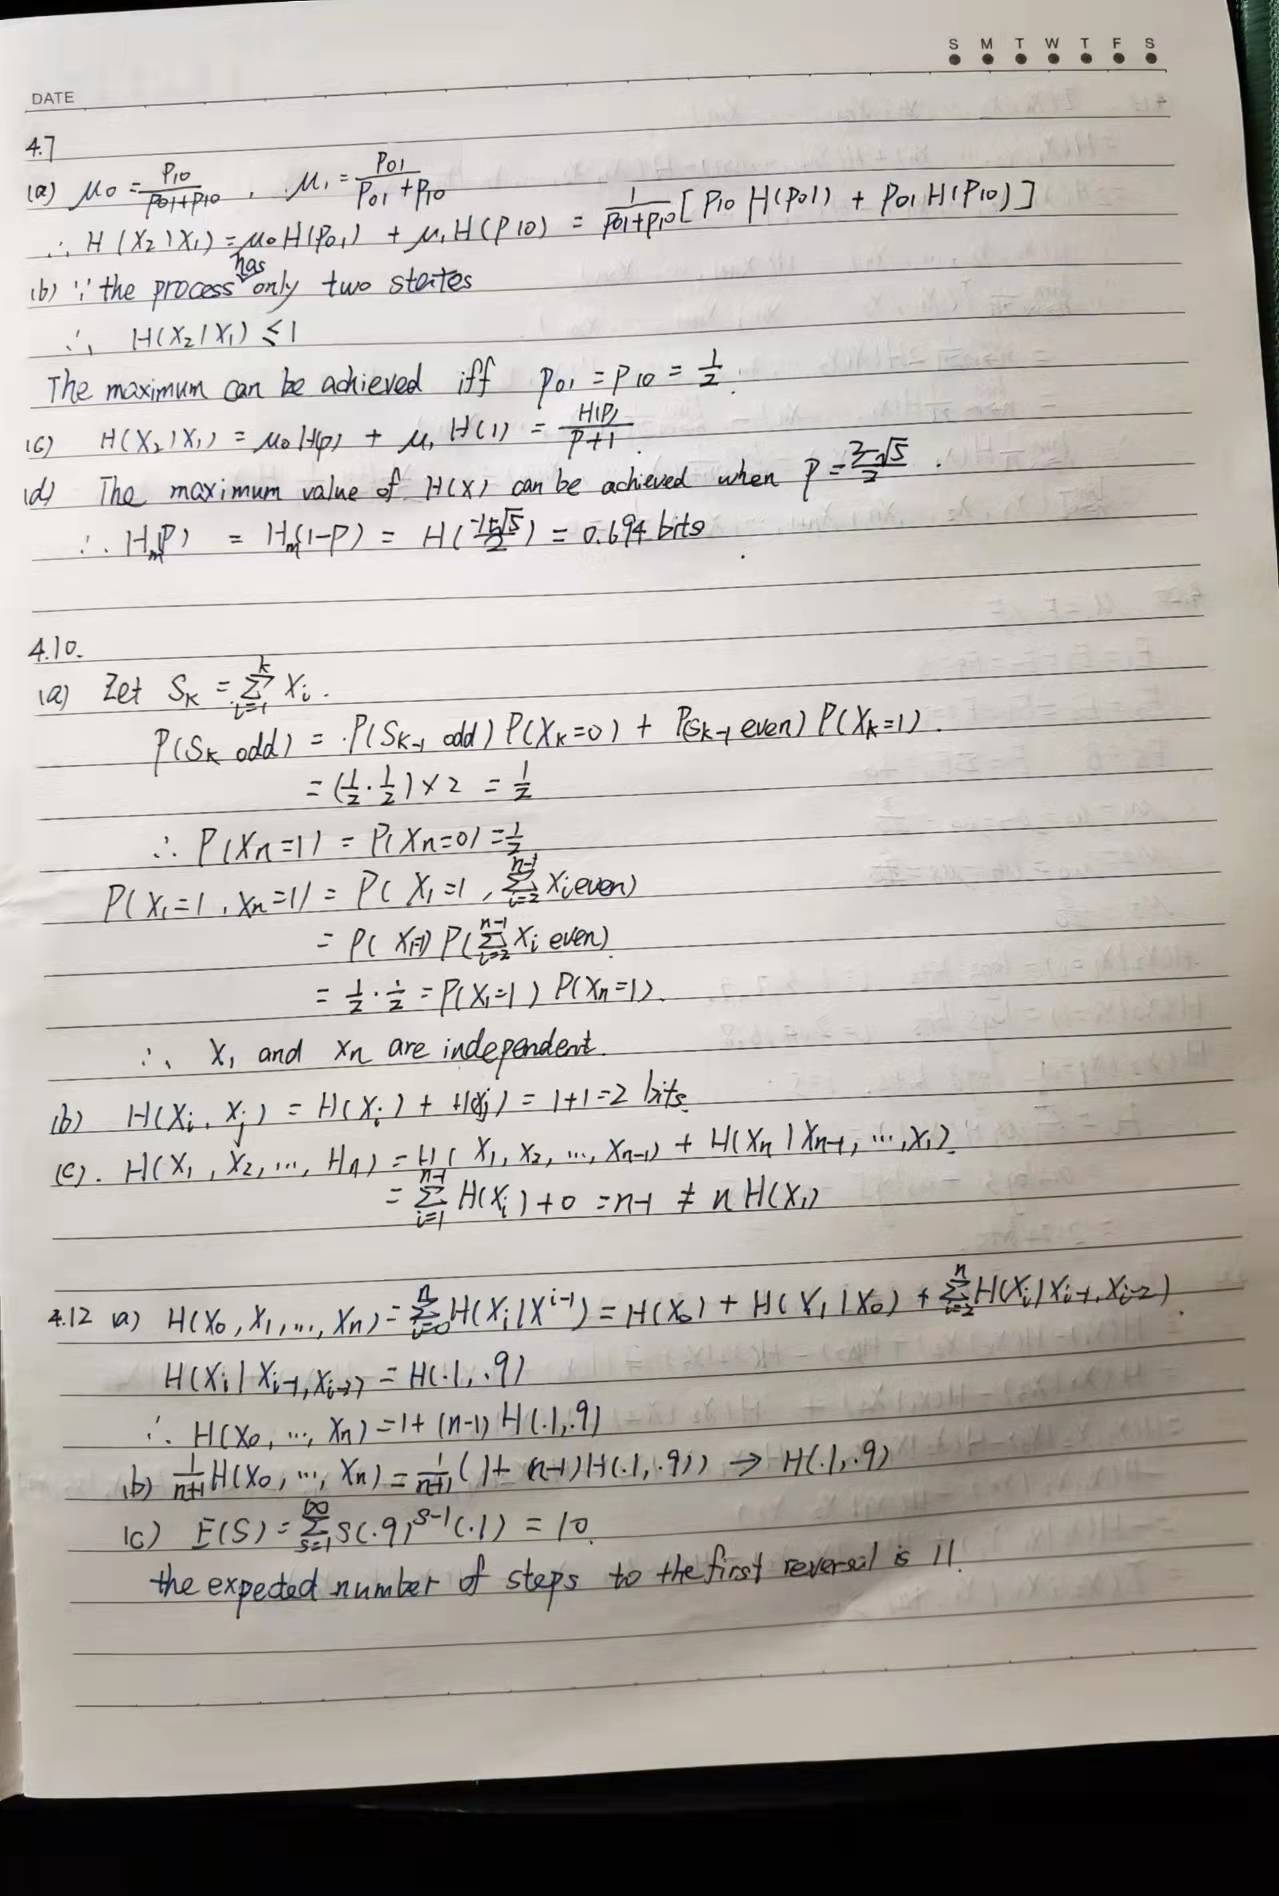 S M T W T F S
DATE
4.7
(a) μ0 = P10/(P01+P10) , μ1 = P01/(P01+P10)
∴ H(X2|X1) = μ0H(P01) + μ1H(P10) = 1/(P01+P10) [P10 H(P01) + P01 H(P10)]
(b) ∵ the process has only two states
∴ H(X2|X1) ≤ 1
The maximum can be achieved iff P01 = P10 = 1/2.
(c) H(X2|X1) = μ0H(p) + μ1H(1) = H(P)/(P+1).
(d) The maximum value of H(X) can be achieved when P = (3-√5)/2 .
∴ Hm(P) = Hm(1-P) = H((-1+√5)/2) = 0.694 bits
4.10.
(a) Let Sk = ∑_{i=1}^{k} Xi.
P(Sk odd) = P(Sk-1 odd) P(Xk=0) + P(Sk-1 even) P(Xk=1).
= (1/2 · 1/2) × 2 = 1/2
∴ P(Xn=1) = P(Xn=0) = 1/2
P(X1=1, Xn=1) = P(X1=1, ∑_{i=2}^{n-1} Xi even)
= P(X1=1) P(∑_{i=2}^{n-1} Xi even)
= 1/2 · 1/2 = P(X1=1) P(Xn=1).
∴ X1 and Xn are independent.
(b) H(Xi, Xj) = H(Xi) + H(Xj) = 1+1=2 bits.
(c). H(X1, X2, ..., Hn) = H(X1, X2, ..., Xn-1) + H(Xn|Xn-1, ..., X1).
= ∑_{i=1}^{n-1} H(Xi) + 0 = n-1 ≠ n H(X1)
4.12 (a) H(X0, X1, ..., Xn) = ∑_{i=0}^{n} H(Xi|X^{i-1}) = H(X0) + H(X1|X0) + ∑_{i=2}^{n} H(Xi|Xi-1, Xi-2).
H(Xi|Xi-1, Xi-2) = H(.1, .9)
∴ H(X0, ..., Xn) = 1 + (n-1) H(.1, .9)
(b) 1/(n+1) H(X0, ..., Xn) = 1/(n+1) (1+ n-1)H(.1, .9)) → H(.1, .9)
(c) E(S) = ∑_{s=1}^{∞} S(.9)^{s-1}(.1) = 10.
the expected number of steps to the first reversal is 11.